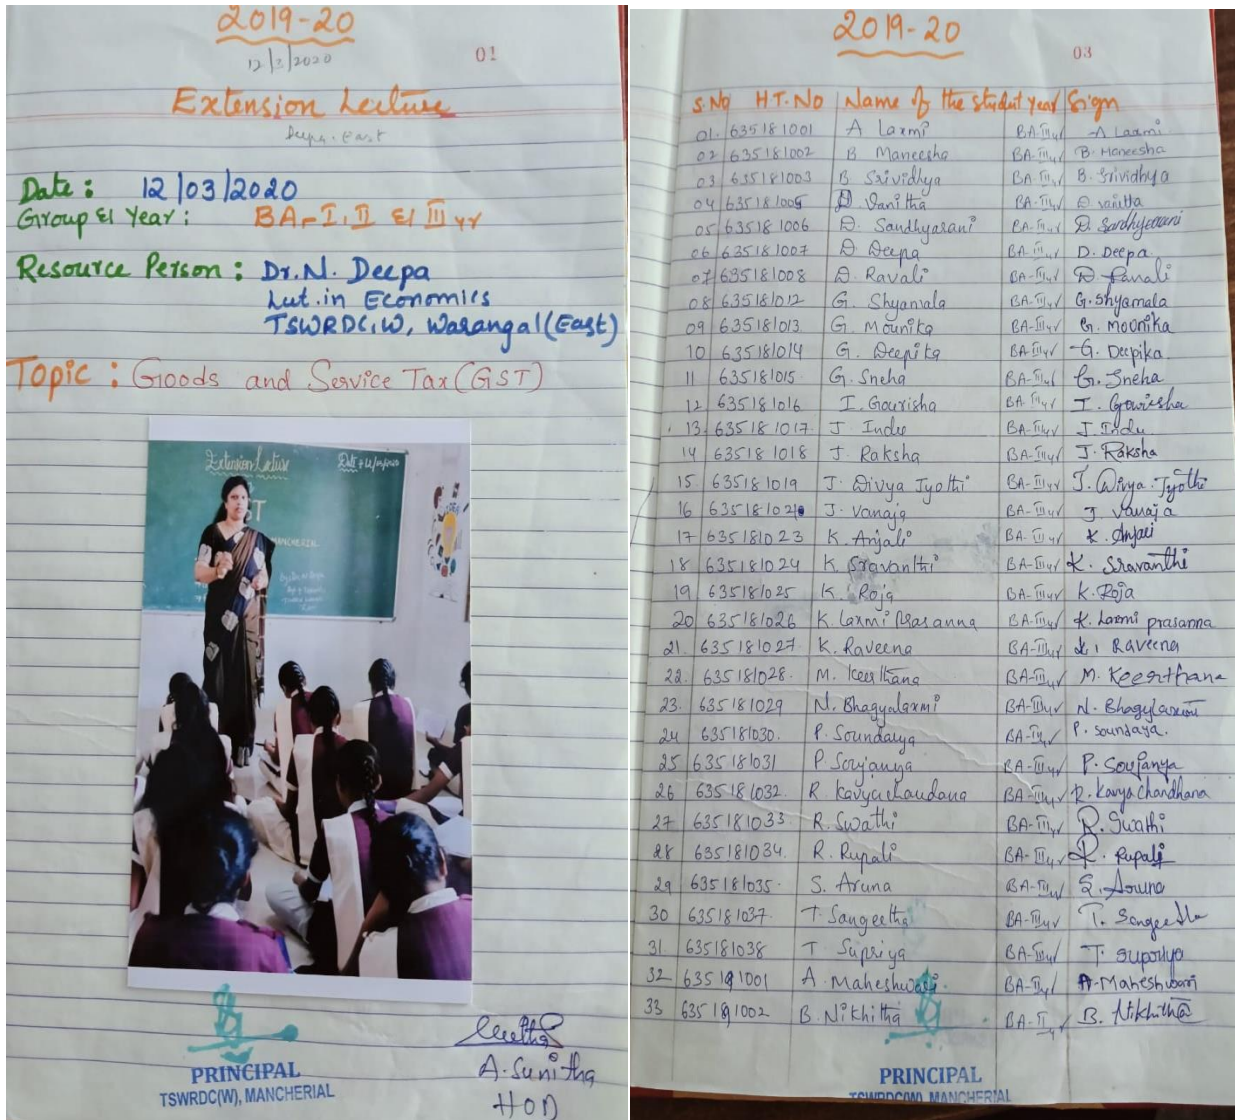 2019-20
12/3/2020
01
Extension Lecture
Date : 12/03/2020
Group & Year : BA- I, II & III yr
Resource Person : Dr. N. Deepa
Lut. in Economics
TSWRDC, W, Warangal (East)
Topic : Goods and Service Tax (GST)
Extension Lecture
Date : 12/03/2020
MANCHERIAL
PRINCIPAL
TSWRDC(W), MANCHERIAL
A. Sunitha
HOD
2019-20
03
S.No H.T. No Name of the student Year Sign
01. 635181001 A Laxmi BA-III yr A Laxmi
02 635181002 B Maneesha BA-III yr B. Maneesha
03 635181003 B Srividhya BA-III yr B. Srividhya
04 635181005 D. Vanitha BA-III yr D vanitha
05 635181006 D. Sandhyarani BA-III yr D. Sandhyarani
06 635181007 D. Deepa BA-III yr D. Deepa
07 635181008 D. Ravali BA-III yr D Ravali
08 635181012 G. Shyamala BA-III yr G. Shyamala
09 635181013 G. Mounika BA-III yr G. Moonika
10 635181014 G. Deepika BA-III yr G. Deepika
11 635181015 G. Sneha BA-III yr G. Sneha
12 635181016 I. Gourisha BA-III yr I. Gowrisha
13 635181017 J. Indu BA-III yr J. Indu
14 635181018 J. Raksha BA-III yr J. Raksha
15. 635181019 J. Divya Jyothi BA-III yr J. Divya Jyothi
16 635181021 J. Vanaja BA-III yr J. Vanaja
17 635181023 K. Anjali BA-III yr K. Anjali
18 635181024 K. Sravanthi BA-III yr K. Sravanthi
19 635181025 K. Roja BA-III yr K. Roja
20 635181026 K. Laxmi Prasanna BA-III yr K. Laxmi prasanna
21. 635181027 K. Raveena BA-III yr K. Raveena
22. 635181028. M. Keerthana BA-III yr M. Keerthana
23. 635181029 N. Bhagyalaxmi BA-III yr N. Bhagylaxmi
24 635181030. P. Soundarya BA-III yr P. soundarya.
25 635181031 P Soujanya BA-III yr P. Soujanya
26 635181032. R Kavyachandana BA-III yr R. Kavya chandhana
27 635181033. R. Swathi BA-III yr R. Swathi
28 635181034. R. Rupali BA-III yr R. Rupali
29 635181035. S. Aruna BA-III yr S. Aruna
30 635181037. T. Sangeetha BA-III yr T. Sangeetha
31. 635181038 T Supriya BA-III yr T. supriya
32 635191001 A. Maheshwari BA-II yr A. Maheshwari
33 635191002 B. Nikhitha BA-II yr B. Nikhitha
PRINCIPAL
TSWRDC(W), MANCHERIAL